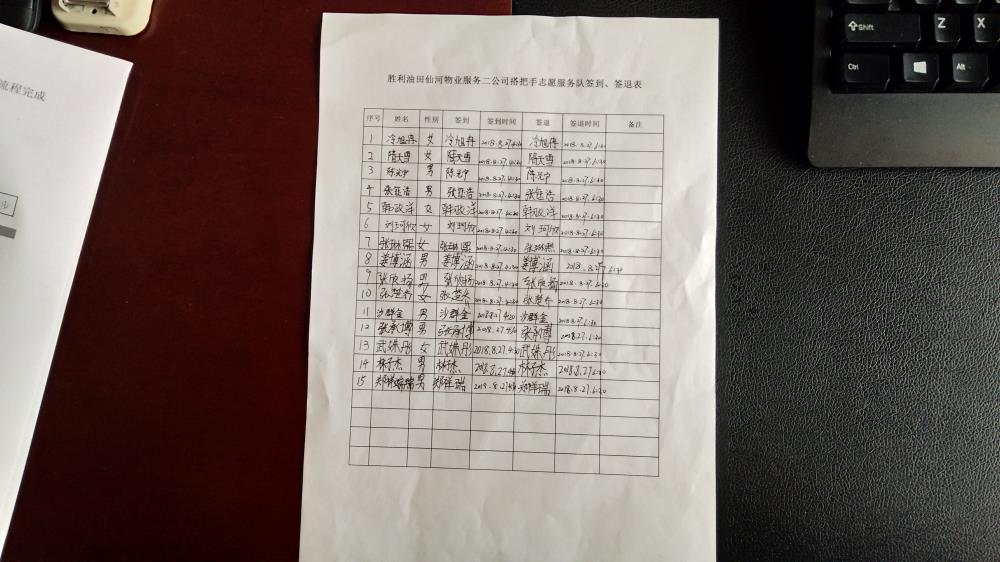 流程完成
步
Shift
Z
X
Ctrl
Alt
胜利油田仙河物业服务二公司搭把手志愿服务队签到、签退表
序号 姓名 性别 签到 签到时间 签退 签退时间 备注
1 冷旭冉 女 冷旭冉 2018.8.27.4:20 冷旭冉 2018.8.27.6:20
2 隋天雪 女 隋天雪 2018.8.27.4:20 隋天雪 2018.8.27.6:20
3 陈光宁 男 陈光宁 2018.8.27.4:20 陈光宁 2018.8.27.6:20
4 张钰浩 男 张钰浩 2018.8.27.4:20 张钰浩 2018.8.27.6:20
5 韩政洋 女 韩政洋 2018.8.27.4:20 韩政洋 2018.8.27.6:20
6 刘珂欣 女 刘珂欣 2018.8.27.4:20 刘珂欣 2018.8.27.6:20
7 张琳熙 女 张琳熙 2018.8.27.4:20 张琳熙 2018.8.27.6:20
8 姜博涵 男 姜博涵 2018.8.27.4:20 姜博涵 2018.8.27 6:20
9 张欣扬 男 张欣扬 2018.8.27.4:20 张欣扬 2018.8.27.6:20
10 张楚乔 女 张楚乔 2018.8.27.4:20 张楚乔 2018.8.27.6:20
11 沙群金 男 沙群金 2018.8.27 4:20 沙群金 2018.8.27.6:20
12 张承博 男 张承博 2018.27.4:20 张承博 2018.27.6:20
13 武姝彤 女 武姝彤 2018.8.27.4:20 武姝彤 2018.8.27.6:20
14 林子杰 男 林子杰 2018.8.27.4:20 林子杰 2018.8.27 6:20
15 郑祥瑞 男 郑祥瑞 2018.8.27.4:20 郑祥瑞 2018.8.27.6:20